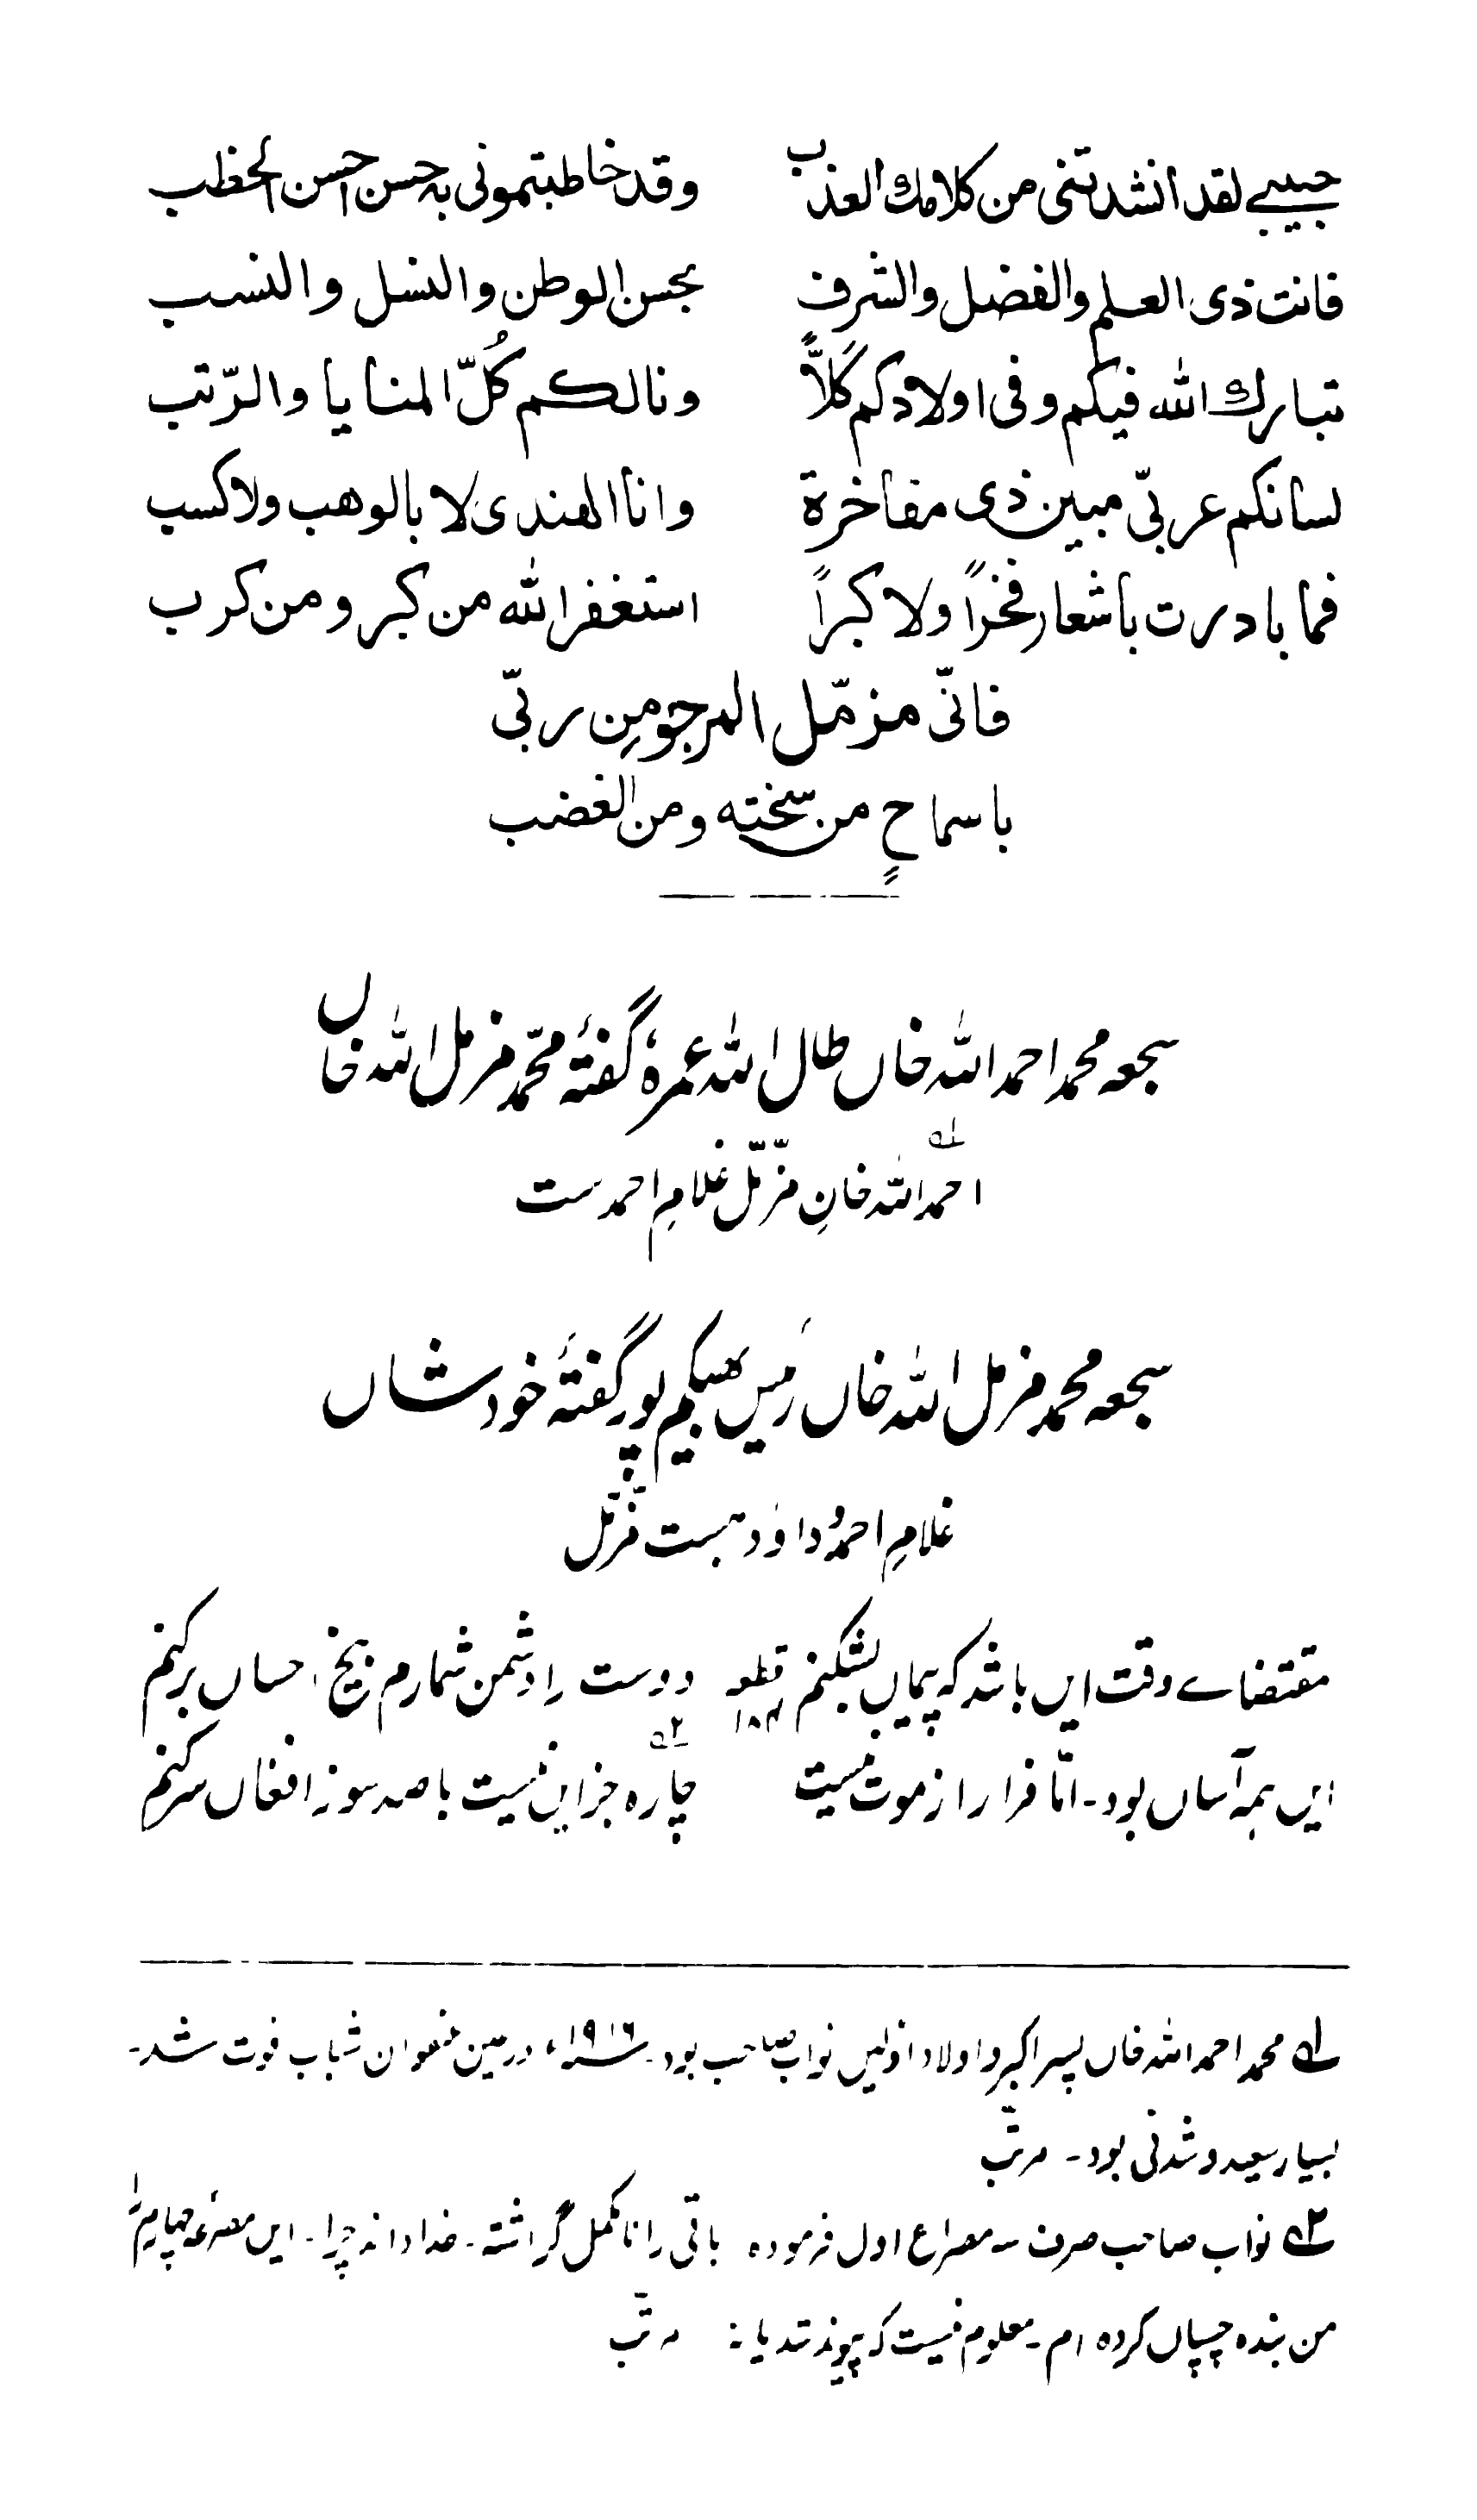 حبيبے لقد انشدتنی من كلامك العذب وقد خاطبتمونی به حسن احسن الخطب
فانت ذی العلم والفضل والشرف بحسن الوطن والنسل والنسب
تبارك الله فيكم وفی اولادكم كُلاًّ ونالكم كُلّ المنايا والرّتب
لسانكم عربیّ مبين ذی مفاخرة وانا الهندی لا بالوهب ولا كسب
فما بادرت باشعار فخراً ولا كبراً استغفر الله من كبر ومن كرب
فانّی مزمّل المرجو مِن ربّی
باسماحٍ من سخته ومن الغضب
سجعہ محمد احمد اللہ خاں طال اللہ عمرہٗ گفتۂ محمّد مزمل اللہ خاں
احمد اللہ خانِ مزّمّل غلامِ احمدست ؎۱
سجعہ محمد مزمل اللہ خاں رئیس بھیکم پور گفتۂ خود شاں
غلامِ احمدؐ و داؤد ہست مزّمّل
مقتضاے وقت ایں باشد کہ پیماں بشکنم قطعہ دوست را دشمن شمارم بیخ احساں برکنم
ایں ہمہ آساں بود۔ امّا فرار از موت نیست چارہ جز ایں نیست با صد سوز افغاں سرکنم ؎۲
؎۱ محمد احمد اللہ خاں پسر اکبر و اولاد اولیں نواب صاحب بود۔ ۱۹۱۶ء در عین عنفوان شباب فوت شد۔
بسیار سعید و شدنی بود۔ مرتّب
؎۲ نواب صاحب صرف سہ مصراع اول فرمودہ باقی را نامکمل گزاشتہ۔ خدا داند چرا۔ ایں مصرعۂ چہارم
من بندہ چسپاں کردہ ام۔ معلوم نیست کہ پیوند شد یا نہ مرتّب